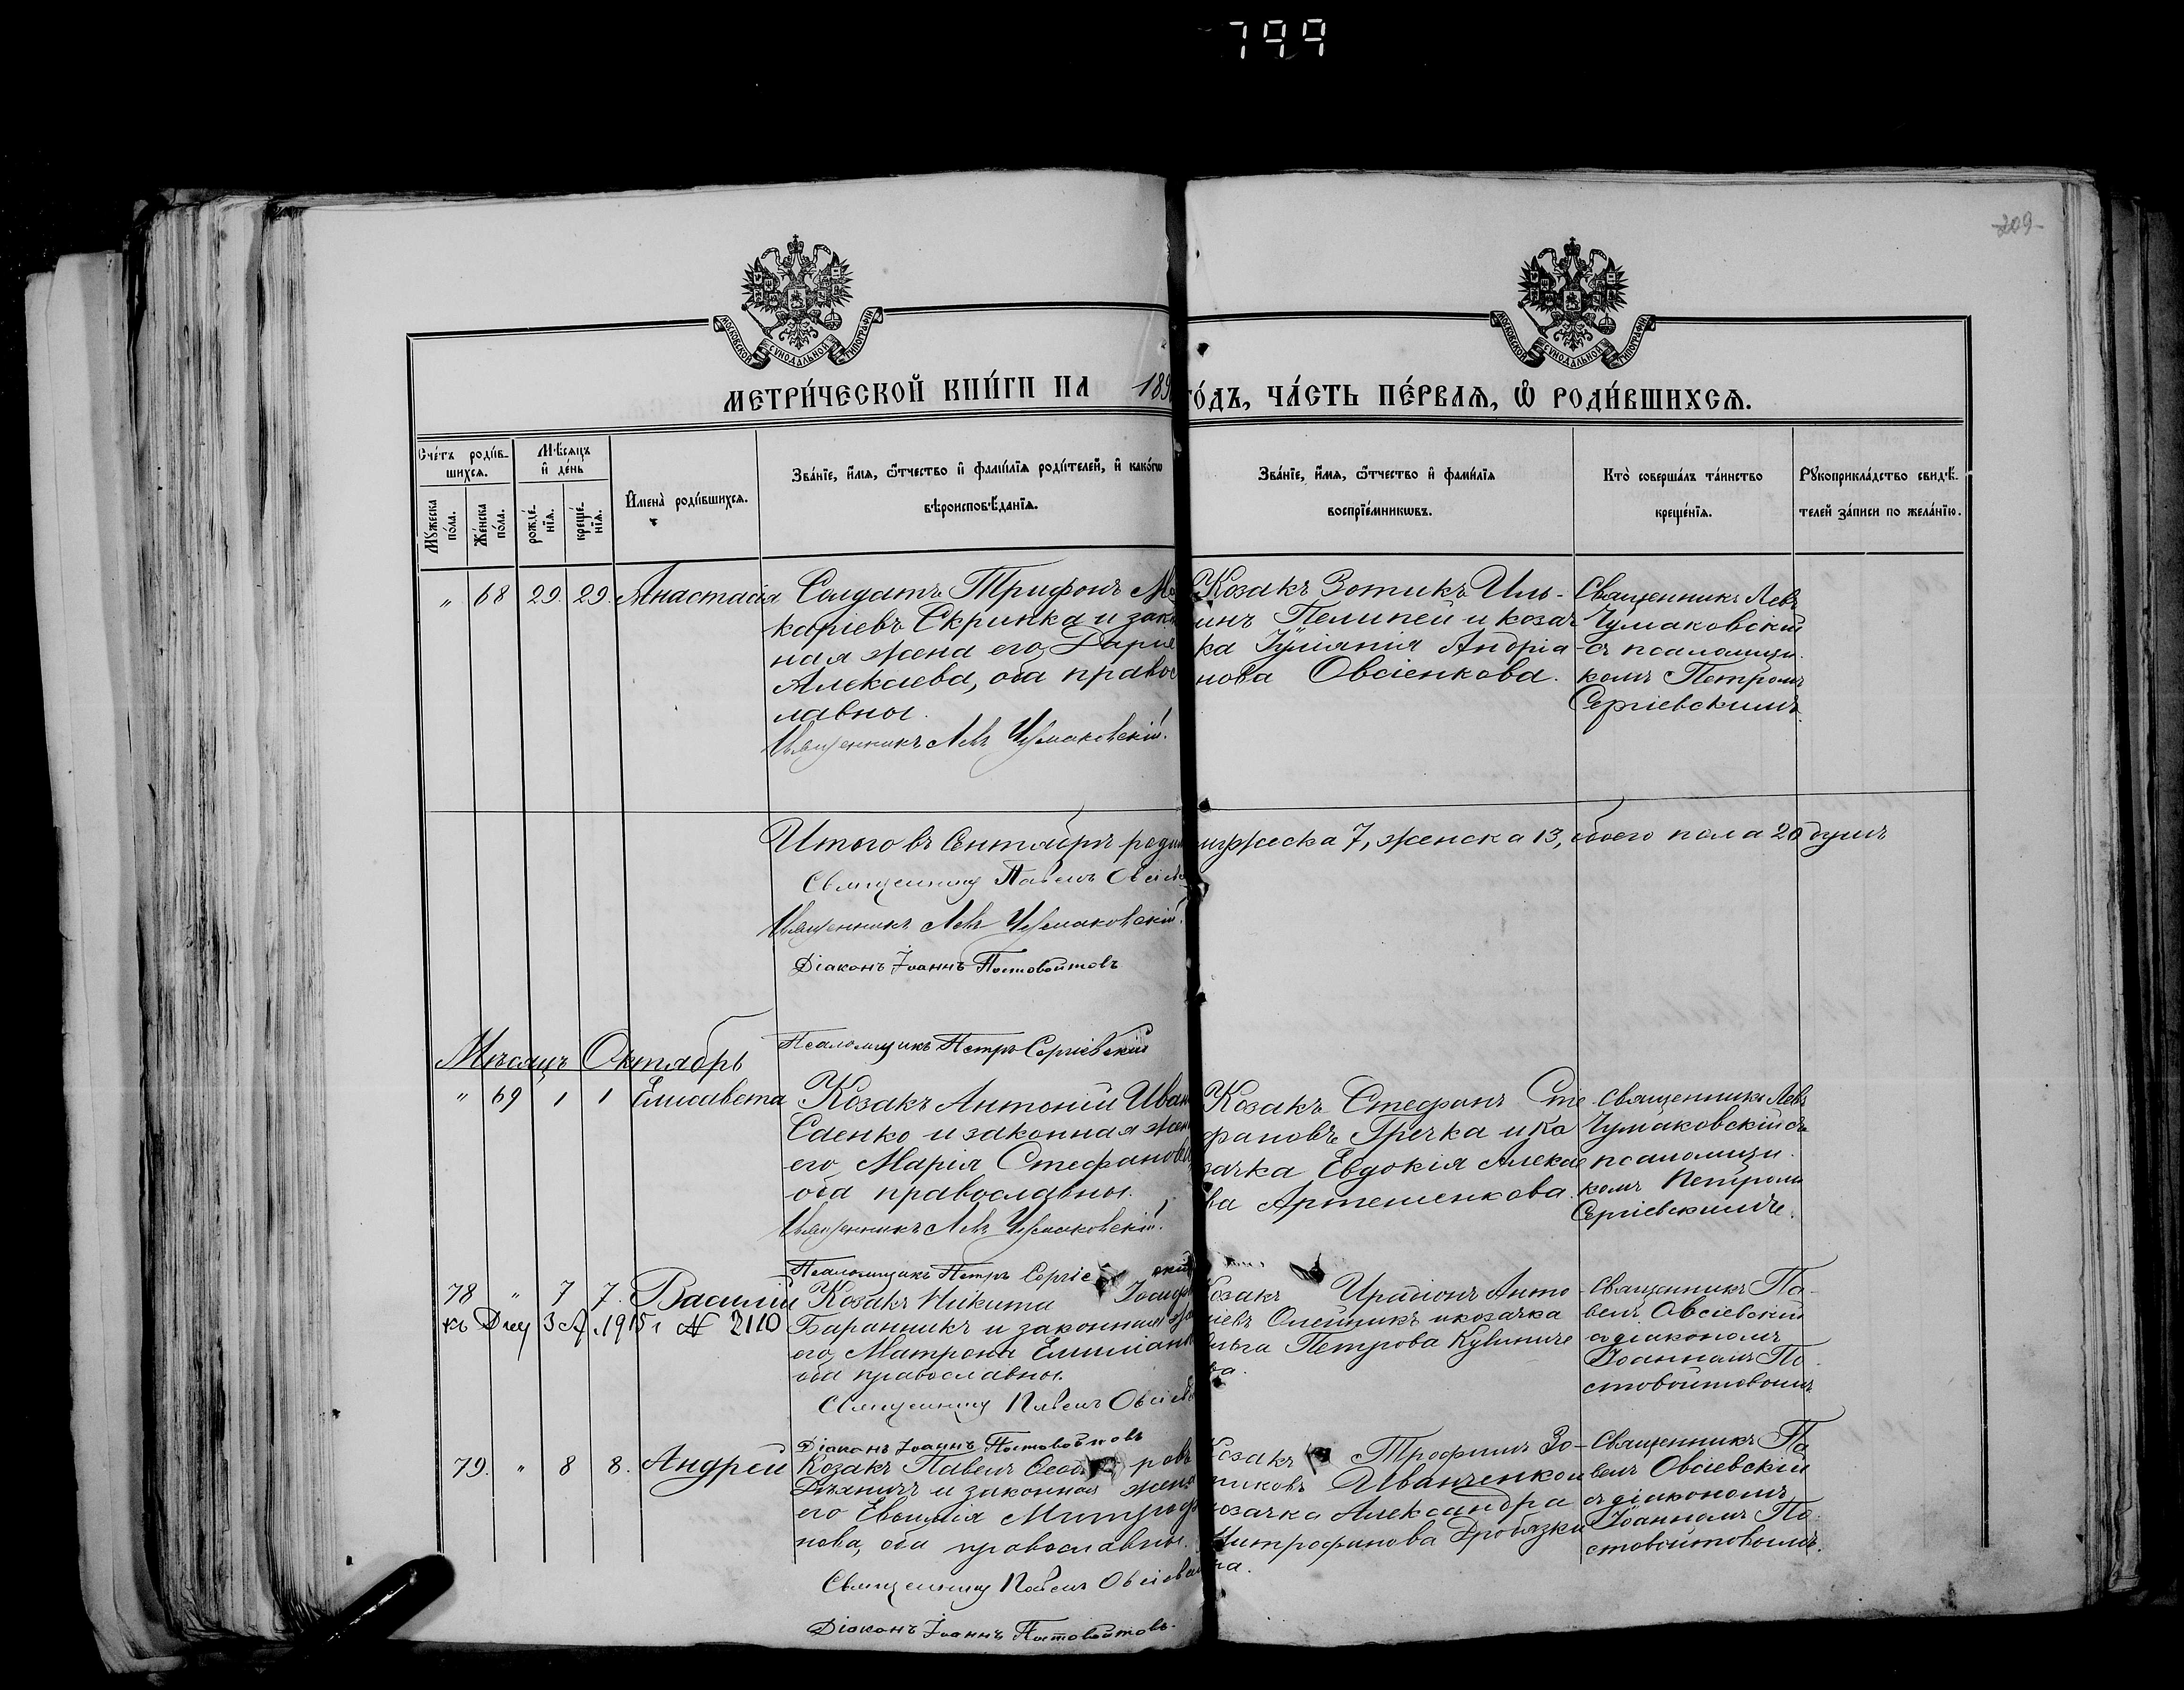 799
209
МОСКОВСКОЙ СѴНОДАЛЬНОЙ ТИПОГРАФІИ
МОСКОВСКОЙ СѴНОДАЛЬНОЙ ТИПОГРАФІИ
МЕТРИ́ЧЕСКОЙ КНИ́ГИ НА 189 ГО́ДЪ, ЧА́СТЬ ПЕ́РВАѦ, Ѡ҆ РОДИ́ВШИХСѦ.
Сче́тъ роди́в-
шихсѧ.
Мѣ́сѧцъ
и҆ де́нь
Мꙋ́жеска по́ла.
Же́нска по́ла.
рожде́-нїѧ.
креще́-нїѧ.
И҆мена̀ роди́вшихсѧ.
Зва́нїе, и҆́мѧ, ѻ҆́тчество и҆ фами́лїѧ роди́телей, и҆ како́гѡ
вѣроисповѣ́данїѧ.
Зва́нїе, и҆́мѧ, ѻ҆́тчество и҆ фами́лїѧ
воспрїе́мникѡвъ.
Кто̀ соверша́лъ та́инство
креще́нїѧ.
Рꙋкоприкла́дство свидѣ́-
телей за́писи по жела́нїю.
" 68 29. 29. Анастасія
Солдатъ Трифонъ Ма
каріевъ Скрипка и зак
ная жена его Дарія
Алексіева, оба правос
лавные.
Священникъ Левъ Чумаковскій.
Козакъ Зотикъ Иль-
инъ Пелипей и козач
ка Іуліанія Андріа
нова Овсіенкова.
Священникъ Левъ
Чумаковскій
съ псаломщи.
комъ Петромъ
Сергіевскимъ.
Итого въ Сентябрѣ роди мужеска 7, женска 13, обоего пола 20 душъ
Священникъ Павелъ Овсіев
Священникъ Левъ Чумаковскій.
Діаконъ Іоаннъ Постовойтовъ
Псаломщикъ Петръ Сергіевскій
Мѣсяцъ Октябрь
" 69 1 1 Елисавета
Козакъ Антоній Иван
Саенко и законная жен
его Марія Стефанова
оба православные.
Священникъ Левъ Чумаковскій.
Псаломщикъ Петръ Сергіе скій
Козакъ Стефанъ Сте
фановъ Гречка и ко
зачка Евдокія Алексе
ва Артеменкова.
Священникъ Левъ
Чумаковскій съ
псаломщи.
комъ Петромъ
Сергіевскимъ.
78 " 7 7. Василій
3 1915 г № 2110
Козакъ Никита
Баранникъ и законная
его Матрона Емиліан
оба православные.
Священникъ Павелъ Овсіев
Діаконъ Іоаннъ Постовойтовъ
Козакъ Анто
ніевъ Олейникъ и козачка
Ольга Петрова Кулиниче
ва.
Священникъ Па-
велъ Овсіевскій
съ діакономъ
Іоанномъ По-
стовойтовымъ
79. " 8 8. Андрей
Козакъ Павелъ Ѳеод ровъ
и законная жена
его Евфимія Митроф
нова, оба православные.
Священникъ Павелъ Овсіевскій
Діаконъ Іоаннъ Постовойтовъ.
Козакъ Трофимъ Зо-
тиковъ Иванченко и
козачка Александра
Митрофанова Дробязки
на.
Священникъ Па
велъ Овсіевскій
съ діакономъ
Іоанномъ По.
стовойтовымъ.